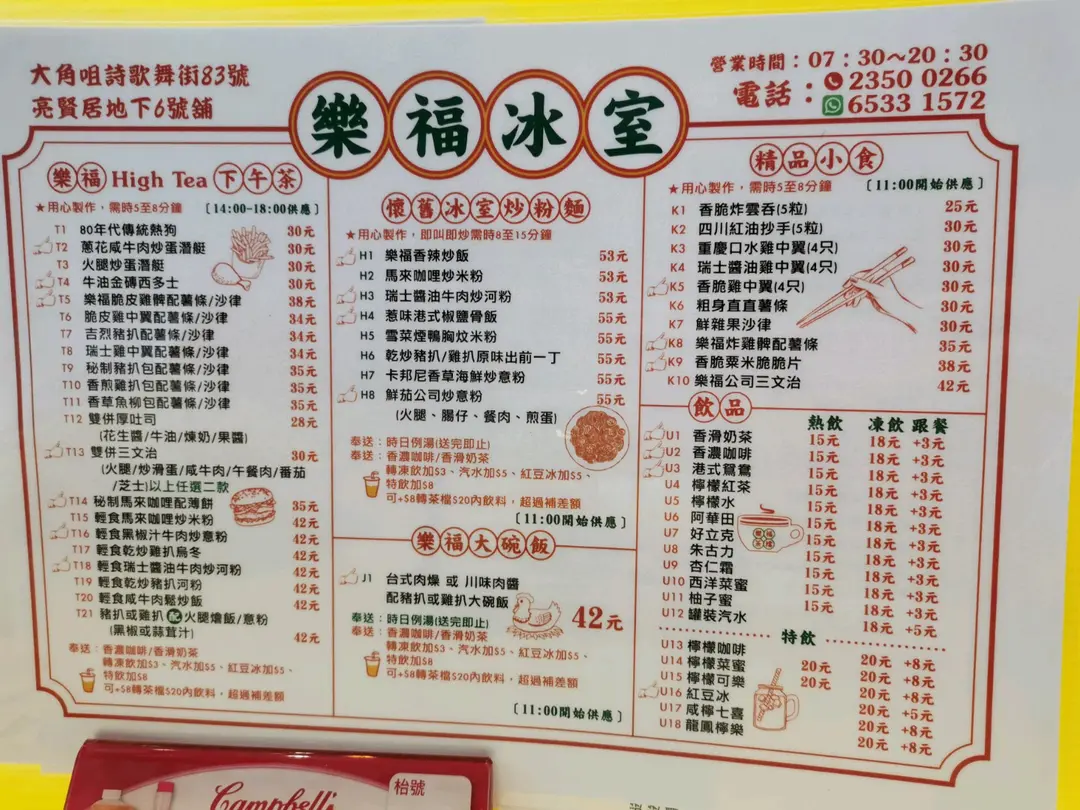 大角咀詩歌舞街83號
亮賢居地下6號舖
樂福冰室
營業時間：07：30～20：30
電話：2350 0266
6533 1572
樂福 High Tea 下午茶
★用心製作，需時5至8分鐘 〔14:00-18:00供應〕
T1 80年代傳統熱狗 30元
T2 蔥花咸牛肉炒蛋潛艇 30元
T3 火腿炒蛋潛艇 30元
T4 牛油金磚西多士 30元
T5 樂福脆皮雞髀配薯條/沙律 38元
T6 脆皮雞中翼配薯條/沙律 34元
T7 吉烈豬扒配薯條/沙律 34元
T8 瑞士雞中翼配薯條/沙律 34元
T9 秘制豬扒包配薯條/沙律 35元
T10 香煎雞扒包配薯條/沙律 35元
T11 香草魚柳包配薯條/沙律 35元
T12 雙併厚吐司 28元
(花生醬/牛油/煉奶/果醬)
T13 雙併三文治 30元
(火腿/炒滑蛋/咸牛肉/午餐肉/番茄
/芝士)以上任選二款
T14 秘制馬來咖哩配薄餅 35元
T15 輕食馬來咖哩炒米粉 42元
T16 輕食黑椒汁牛肉炒意粉 42元
T17 輕食乾炒雞扒烏冬 42元
T18 輕食瑞士醬油牛肉炒河粉 42元
T19 輕食乾炒豬扒河粉 42元
T20 輕食咸牛肉鬆炒飯 42元
T21 豬扒或雞扒配火腿燴飯/意粉
(黑椒或蒜茸汁) 42元
奉送：香濃咖啡/香滑奶茶
轉凍飲加$3、汽水加$5、紅豆冰加$5、
特飲加$8
可+$8轉茶檔$20內飲料，超過補差額
懷舊冰室炒粉麵
★用心製作，即叫即炒需時8至15分鐘
H1 樂福香辣炒飯 53元
H2 馬來咖哩炒米粉 53元
H3 瑞士醬油牛肉炒河粉 53元
H4 惹味港式椒鹽骨飯 55元
H5 雪菜煙鴨胸炆米粉 55元
H6 乾炒豬扒/雞扒原味出前一丁 55元
H7 卡邦尼香草海鮮炒意粉 55元
H8 鮮茄公司炒意粉 55元
(火腿、腸仔、餐肉、煎蛋)
奉送：時日例湯(送完即止)
奉送：香濃咖啡/香滑奶茶
轉凍飲加$3、汽水加$5、紅豆冰加$5、
特飲加$8
可+$8轉茶檔$20內飲料，超過補差額
〔11:00開始供應〕
樂福大碗飯
J1 台式肉燥 或 川味肉醬
配豬扒或雞扒大碗飯 42元
奉送：時日例湯(送完即止)
奉送：香濃咖啡/香滑奶茶
轉凍飲加$3、汽水加$5、紅豆冰加$5、
特飲加$8
可+$8轉茶檔$20內飲料，超過補差額
〔11:00開始供應〕
精品小食
★用心製作，需時5至8分鐘 〔11:00開始供應〕
K1 香脆炸雲吞(5粒) 25元
K2 四川紅油抄手(5粒) 30元
K3 重慶口水雞中翼(4只) 30元
K4 瑞士醬油雞中翼(4只) 30元
K5 香脆雞中翼(4只) 30元
K6 粗身直直薯條 30元
K7 鮮雜果沙律 30元
K8 樂福炸雞髀配薯條 35元
K9 香脆粟米脆脆片 38元
K10 樂福公司三文治 42元
飲品 熱飲 凍飲 跟餐
U1 香滑奶茶 15元 18元 +3元
U2 香濃咖啡 15元 18元 +3元
U3 港式鴛鴦 15元 18元 +3元
U4 檸檬紅茶 15元 18元 +3元
U5 檸檬水 15元 18元 +3元
U6 阿華田 15元 18元 +3元
U7 好立克 15元 18元 +3元
U8 朱古力 15元 18元 +3元
U9 杏仁霜 15元 18元 +3元
U10 西洋菜蜜 15元 18元 +3元
U11 柚子蜜 15元 18元 +3元
U12 罐裝汽水 18元 +5元
特飲
U13 檸檬咖啡 20元 20元 +8元
U14 檸檬菜蜜 20元 20元 +8元
U15 檸檬可樂 20元 +8元
U16 紅豆冰 20元 +5元
U17 咸檸七喜 20元 +8元
U18 龍鳳檸樂 20元 +8元
Campbell's
枱號